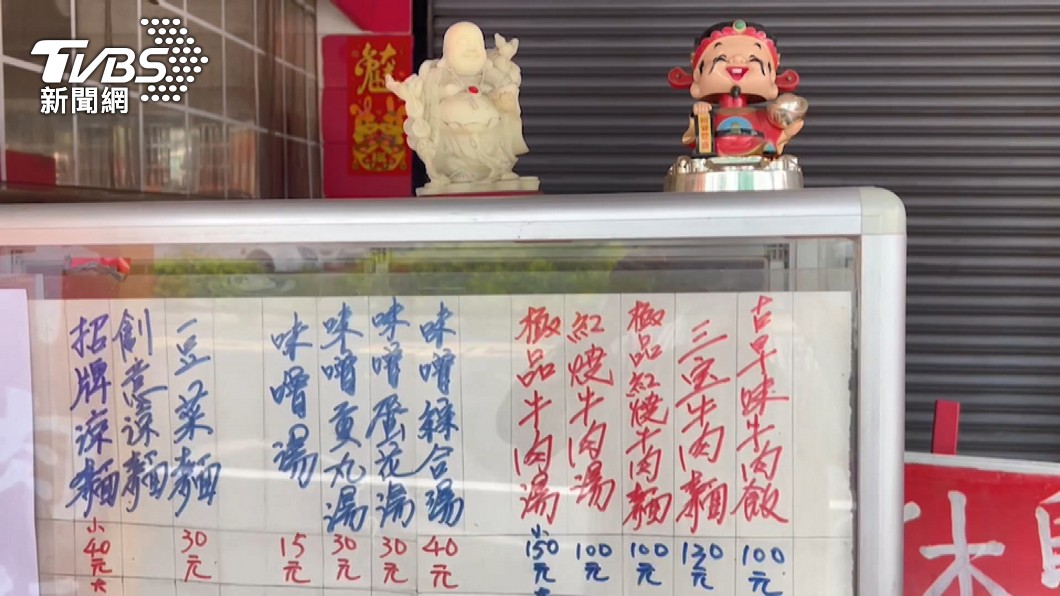 TVBS
新聞網
古早味牛肉飯 100元
三宝牛肉麵 130元
極品紅燒牛肉麵 100元
紅燒牛肉湯 100元
極品牛肉湯 小150元
味噌綜合湯 40元
味噌蛋花湯 30元
味噌貢丸湯 30元
味噌湯 15元
豆菜麵 30元
創意涼麵
招牌涼麵 小40元大
休